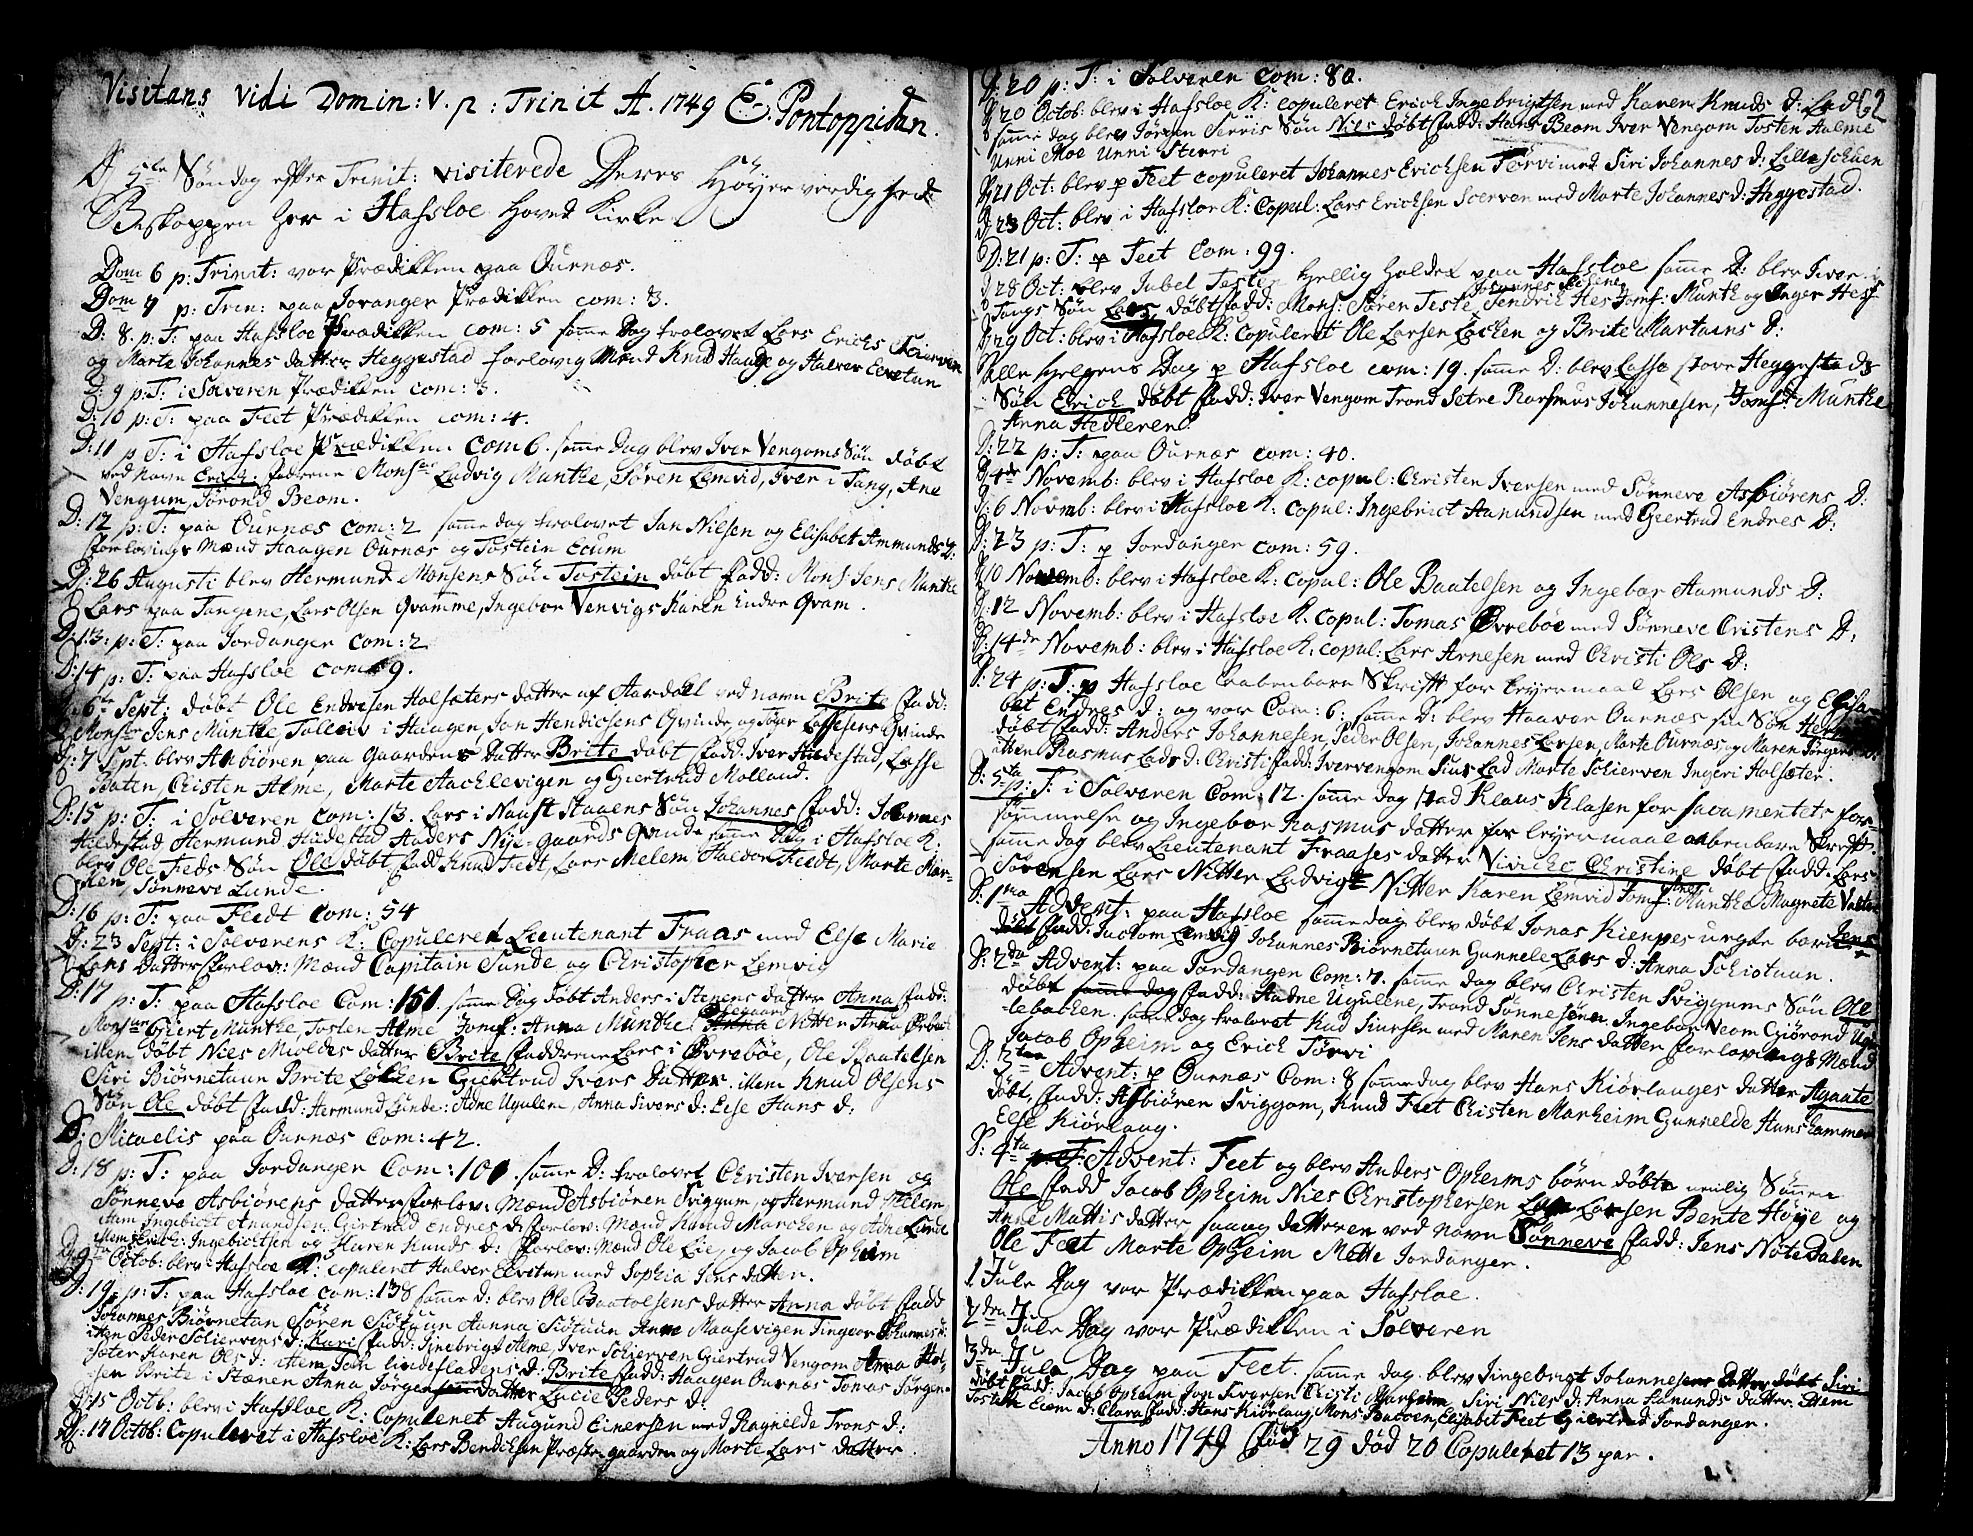 Visitans vidi Domin: V. p: Trinit A. 1749 E. Pontoppidan.
D 5te Søndag efter Trinit: visiterede Deres Høyerværdighed
Biskoppen her i Hafsloe Hoved Kirke
Dom 6 p: Trinit: var Prædikken paa Ournæs.
Dom 7 p: Trin: paa Joranger Prædikken com: 3.
D: 8. p: T: paa Hafsloe Prædikken com: 5 samme Dag trolovet Lars Erichs Scierven
og Marte Johannes datter Heggestad forlovig Mænd Knud Hauge og Halvor Elvetun
D: 9 p: T: i Solveren Prædikken com: 3.
D: 10 p: T: paa Feet Prædikken com: 4.
D: 11 p: T: i Hafsloe Prædikken com 6. samme Dag blev Iver Vengoms Søn døbt
ved navn Erich: fadderne Monsr Ludvig Munthe, Søren Lemvid, Iver i Tang, Ane
Vengum, Jørond Beom.
D: 12 p: T: paa Ournæs com: 2 samme dag trolovet Jan Nilsen og Elisabet Ammunds D:
forlovings Mænd Haagen Ournæs og Tostein Ecum
D: 26 Augusti blev Hermund Monsens Søn Tostein døbt fadd: Mons. Jens Munthe
Lars paa Tangene, Lars Olsen Qvamme, Ingebor Venvigs Karen Endre Qvam.
D: 13: p: T: paa Jordanger com: 2
D: 14 p: T: paa Hafsloe com 9.
D: 6te Sept: døbt Ole Endresen Holsæters datter af Aardahl ved navn Brite fadd:
Monsr Jens Munthe, Tolleiv i Haugen, Jon Hendicsens Qvinde og Siver Lassesens Qvinde
D: 7 Sept. blev Anbiøren paa Gaardens datter Brite døbt fadd: Iver Hildestad, Lasse
Baten, Christen Alme, Marte Hachlevigen og Giertrud Molland.
D: 15 p: T: i Solveren com: 13. Lars i Naust Staaens Søn Johannes fadd: Johannes
Hildestad Hermund Hildestad Anders Nise-Gaards Qvinde samme Dag i Hafsloe K:
blev Ole Feds Søn Ole døbt fadd Knud Fedt, Lars Melem Haldor Fedt, Marte Mar-
then, Sønneve Lunde.
D: 16 p: T: paa Fedt Com: 54
D: 23 Sept: i Solverens K: Copuleret Lieutenant Fraas med Else Marie
Lars datter forlov: Mænd Capitain Sunde og Christopher Lemvig
D: 17 p: T: paa Hafsloe Com: 151. samme Dag døbt Anders i Stenens datter Anna fadd:
Monsr Giert Munthe, Tosten Alme Jomf: Anna Munthe Nitter Anna
item døbt Nies Moldes datter Brite fadderne Lars i Øvrebøe, Ole Baatelsen
Siri Biørnetuun Brite Løkken Giertrud Ivers datter: item Knud Olsens
Søn Ole døbt fadd: Hermund Lunde: Adne Ugulen, Anna Sivers d: Else Hans d:
D: Micaelis paa Ournæs Com: 42.
D: 18 p: T: paa Jordanger Com: 100. samme D: trolovet Christen Iversen og
Sønneve Asbiørens datter forlov: Mænd Asbiøren Sviggum, og Hermund Melem,
item Ingebrict Amundsen Giertrud Endres d: forlov: Mænd Knud Marchen og Adne Lunde
item Erich Ingebrictsen og Karen Knuds d: forlov: Mænd Ole Lie, og Jacob Opheim
D: 9 Octob: blev i Hafsloe K: copuleret Halver Elvetun med Sophia Jens datter.
D: 19 p: T: paa Hafsloe com: 138 samme d: blev Ole Baatolsens datter Anna døbt fadd
Johannes Biørnetun Søren Siøtuun Anna Siøtuun Anne Maasevigen Ingebor Johannes d:
item Peder Schiervens d: Kari fadd: Jinebrigt Alme, Iver Schierven Giertrud Vengom Anna Hol-
sæter Karen Ols d: item Jon Lindesladens d: Brite fadd: Haagen Ournæs Tomas Jørgen-
sen Brite i Stænen Anna Jørgensens datter Lucie Peders d:
D: 15 Octb: blev i Hafsloe K: Copuleret Augund Einersen med Ragnilde Trons d:
D: 17 Octob: Copuleret i Hafsloe K: Lars Bendicksen Præstegaarden og Morte Lars datter.
D: 20 p: T: i Solveren com: 80.
D 20 Octob: blev i Hafsloe K: copuleret Erich Ingebrigtsen med Karen Knuds d: Lad 62
samme dag blev Jørgen Sterris Søn Nils døbt fadd: Hans Beom Iver Vengom Tosten Halme
Unni Moe Unni Sterri
D: 21 Oct: blev p Feet copuleret Johannes Erichsen Tørvi med Siri Johannes d: Lilleschuen
D: 23 Oct: blev i Hafsloe K: Copul: Lars Erichsen Scerven med Marte Johannes d: Heggestad.
D: 21 p: T: p Feet Com: 99.
D 28 Oct: blev Jubel Festen hellig holdet paa Hafsloe samme D: blev Iver i
Tangs Søn Lars, døbt fadd: Mons: Søren Teste Hendrich Hes Jomf: Munthe og Inger Hess
D 29 Oct: blev i Hafsloe K: Copuleret Ole Larsen Løcken og Brite Martuens D:
Alle Helgens Dag p Hafsloe com: 19. samme D: blev Lasse store Heggestads
Søn Erich døbt fadd: Iver Vengom Trond Setre Rasmus Johannesen, Jomf: Munthe
Anna Hedleren
D: 22 p: T: paa Ournæs com: 40.
D: 4de Novemb: blev i Hafsloe K: copul: Christen Iversen med Sønneve Asbiørens D:
D: 6 Novmb: blev i Hafsloe K: Copul: Ingebrict Aamundsen med Giertrud Endres D:
D: 23 p: T: p Jordanger com: 59.
D 10 Novemb: blev i Hafsloe K: Copul: Ole Baatelsen og Ingebor Aamunds D:
D: 12 Novemb: blev i Hafsloe K. Copul: Tomas Øvrebøe med Sønneve Cristens D:
D: 14de Novemb: blev i Hafsloe K: copul: Lars Arnesen med Christi Ols D:
D: 24 p: T: p Hafsloe aabenbare Skrift for leyermaal Lars Olsen og Elisa-
bet Endres d: og var Com: 6: samme D: blev Haaver Ournæs sin Søn
døbt fadd: Anders Johannesen, Peder Olsen, Johannes Larsen, Marte Ournæs, og Maren Jørgens
item Rasmus Lads d: Christi fadd: Iver Vengom Sius Lad Marte Schierven Ingeri Holsæter.
D: 25ta p: T: i Solveren Com: 12. samme dag stod Klaus Klasen for Sacramentets for-
sømmelse og Ingebor Rasmus datter for leyermaal aabenbare Skrift.
samme dag blev Lieutenant Fraases datter Vivicke Christine døbt fadd: Lars
Sørensen Lars Nitter Ludvig Nitter Karen Lemvid Jomf: Munthe Magrete
D: 1ma Advent: paa Hafsloe samme dag blev døbt Jonas Kienpes uegte barn Jens
fadd: Jachom Lemvig Johannes Biørnetuun Gunnele Lars d: Anna Schiotuun.
D: 2da Advent: paa Jordanger Com: 7. samme dag blev Christen Sviggums Søn Ole
døbt fadd: Aadne Ugulene, Trond Sønnesønn Ingebor Veom Giørond
lebachen. samme dag trolovet Knd Siursen med Maren Jens datter forlovings Mænd
Jacob Opheim og Erich Tørvi
D: 3tia Advent: p Ournæs Com: 8 samme dag blev Hans Kiørlauges datter Agaate
døbt, fadd: Asbiøren Sviggom, Knud Feet Christen Marheim Gunnelde Hunshammer
Else Kiørlaug.
D: 4ta Advent: Feet og blev Anders Opheims børn døbte nemlig Sønnen
Ole fadd Jacob Opheim Nies Christophersen Lars Larsen Bente Høyje og
Anne Mattis datter, saaog datteren ved navn Sønneve fadd: Jens Nøtedalen
Ole Feet Marte Opheim Mette Jordanger.
1 Jule Dag var Prædikken paa Hafsloe.
2den Jule Dag var Prædikken i Solveren
3die Jule Dag paa Feet. samme dag blev Jingebrigt Johannesens datter døbt Siri
fadd: Jacob Opheim Jon Siversen Cristi Marheim Siri Niels d: Anna Aamunds datter Item
Tostein Ecem d: Clara fadd: Hans Kiørlaug Mons Elisabet Feet Giertrud Jordanger.
Anno 1749 fød 29 død 20 Copuleret 13 par.